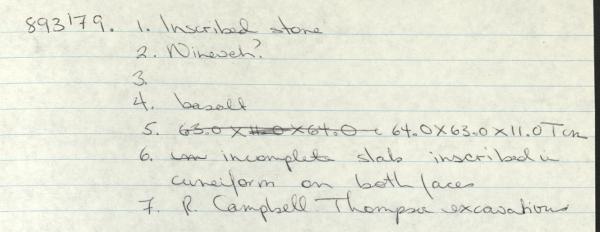 893'79. 1. Inscribed stone
2. Nineveh?
3.
4. basalt
5. 63.0 X 11.0 X 64.0 c 64.0X63.0X11.0Tcm
6. incomplete slab inscribed in
cuneiform on both faces
7. R. Campbell Thompson excavations